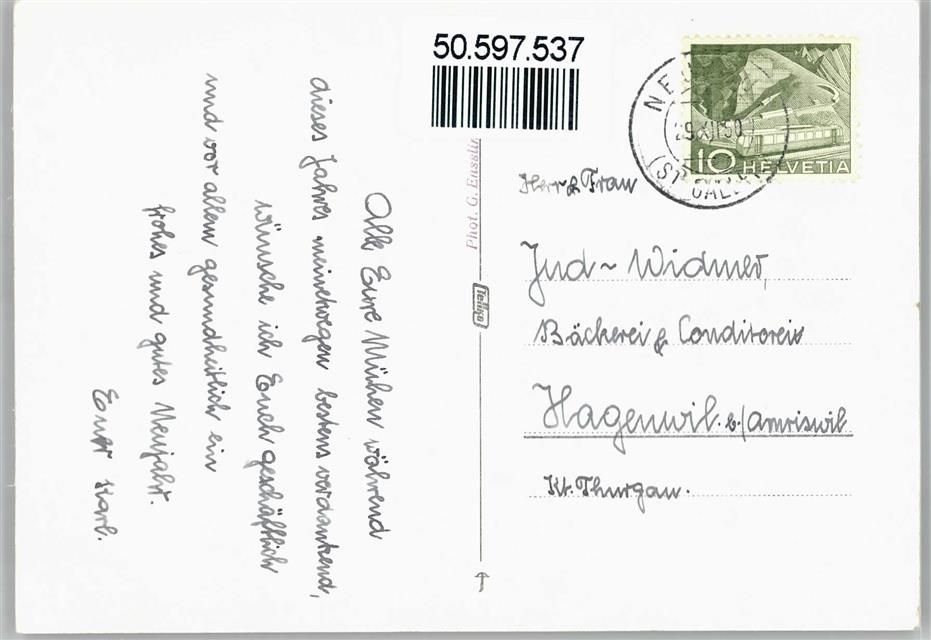 50.597.537
Alle Eure Mühen während
dieses Jahres meinetwegen bestens verdankend,
wünsche ich Euch geschäftlich
und vor allem gesundheitlich ein
frohes und gutes Neujahr.
Euer Karl.
Phot. G. Ensslin
Teilko
10 HELVETIA
(ST. GALLEN)
Herr & Frau
Jud-Widmer,
Bäckerei & Conditorei
Hagenwil b/Amriswil
Kt. Thurgau.